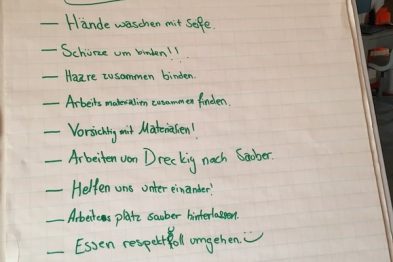 — Hände waschen mit Seife.
— Schürze um binden!!
— Haare zusammen binden.
— Arbeits materialien zusammen finden.
— Vorsichtig mit Materialien!
— Arbeiten von Dreckig nach Sauber.
— Helfen uns unter einander!
— Arbeits platz sauber hinterlassen.
— Essen respektvoll umgehen.